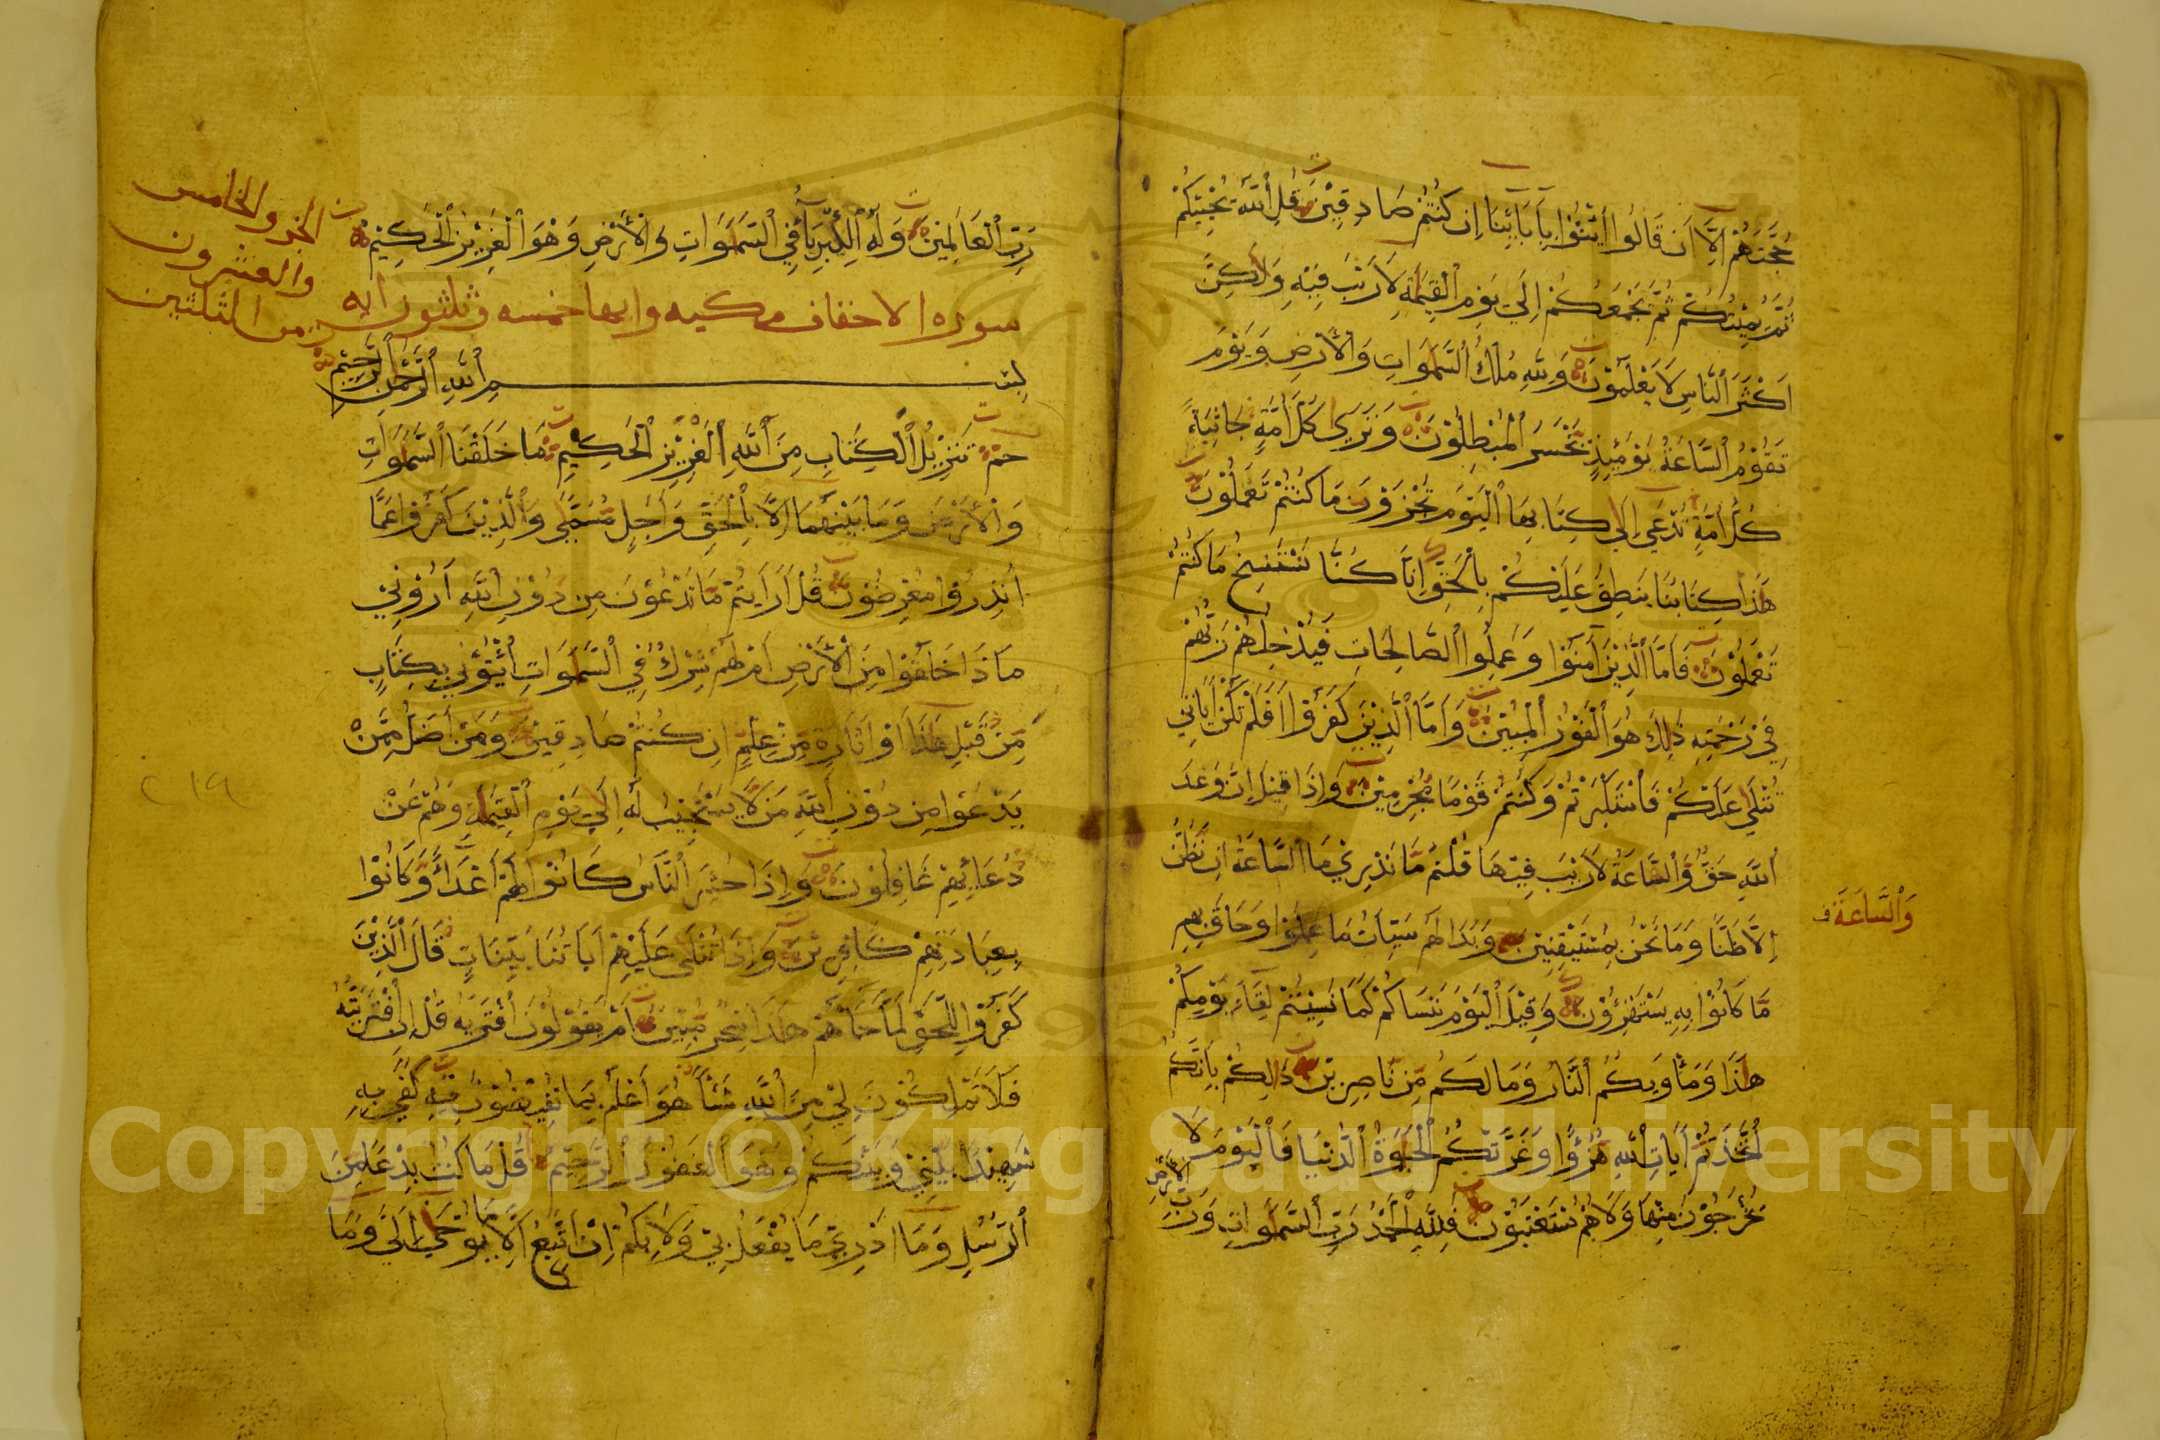 حُجَّتَهُمْ اِلَّا اَن قَالُوا ائْتُوْا بِآبَآئِنَا اِن كُنْتُمْ صَادِقِيْنَ قُلِ اللّٰهُ يُحْيِيْكُمْ
ثُمَّ يُمِيْتُكُمْ ثُمَّ يَجْمَعُكُمْ اِلَى يَوْمِ الْقِيٰمَةِ لَا رَيْبَ فِيْهِ وَلٰكِنَّ
اَكْثَرَ النَّاسِ لَا يَعْلَمُوْنَ وَلِلّٰهِ مُلْكُ السَّمٰوَاتِ وَالْاَرْضِ وَيَوْمَ
تَقُوْمُ السَّاعَةُ يَوْمَئِذٍ يَخْسَرُ الْمُبْطِلُوْنَ وَتَرَى كُلَّ اُمَّةٍ جَاثِيَةً
كُلُّ اُمَّةٍ تُدْعَى اِلَى كِتَابِهَا الْيَوْمَ تُجْزَوْنَ مَا كُنْتُمْ تَعْمَلُوْنَ
هٰذَا كِتَابُنَا يَنطِقُ عَلَيْكُمْ بِالْحَقِّ اِنَّا كُنَّا نَسْتَنْسِخُ مَا كُنْتُمْ
تَعْمَلُوْنَ فَاَمَّا الَّذِيْنَ آمَنُوْا وَعَمِلُوا الصَّالِحَاتِ فَيُدْخِلُهُمْ رَبُّهُمْ
فِي رَحْمَتِهِ ذٰلِكَ هُوَ الْفَوْزُ الْمُبِيْنُ وَاَمَّا الَّذِيْنَ كَفَرُوْا اَفَلَمْ تَكُنْ اٰيَاتِي
تُتْلَى عَلَيْكُمْ فَاسْتَكْبَرْتُمْ وَكُنْتُمْ قَوْمًا مُجْرِمِيْنَ وَاِذَا قِيْلَ اِنَّ وَعْدَ
اللّٰهِ حَقٌّ وَالسَّاعَةُ لَا رَيْبَ فِيْهَا قُلْتُمْ مَا نَدْرِي مَا السَّاعَةُ اِن نَظُنُّ
وَالسَّاعَةَ ف
اِلَّا ظَنًّا وَمَا نَحْنُ بِمُسْتَيْقِنِيْنَ وَبَدَا لَهُمْ سَيِّئَاتُ مَا عَمِلُوْا وَحَاقَ بِهِمْ
مَّا كَانُوْا بِهِ يَسْتَهْزِؤُنَ وَقِيْلَ الْيَوْمَ نَنْسَاكُمْ كَمَا نَسِيْتُمْ لِقَآءَ يَوْمِكُمْ
هٰذَا وَمَأْوٰيكُمُ النَّارُ وَمَا لَكُم مِّن نَّاصِرِيْنَ ذٰلِكُمْ بِاَنَّكُمُ
اتَّخَذْتُمْ اٰيَاتِ اللّٰهِ هُزُوًا وَغَرَّتْكُمُ الْحَيٰوةُ الدُّنْيَا فَالْيَوْمَ لَا
يُخْرَجُوْنَ مِنْهَا وَلَا هُمْ يُسْتَعْتَبُوْنَ فَلِلّٰهِ الْحَمْدُ رَبِّ السَّمٰوَاتِ وَرَبِّ الْاَرْضِ
رَبِّ الْعَالَمِيْنَ وَلَهُ الْكِبْرِيَآءُ فِي السَّمٰوَاتِ وَالْاَرْضِ وَهُوَ الْعَزِيْزُ الْحَكِيْمُ
الجزو الخامس
والعشرون
من الثلثين
سوره الاحقاف مكيه وايها خمسه وثلثون ايه
بِسْمِ اللّٰهِ الرَّحْمٰنِ الرَّحِيْمِ
حٰمٓ تَنْزِيْلُ الْكِتَابِ مِنَ اللّٰهِ الْعَزِيْزِ الْحَكِيْمِ مَا خَلَقْنَا السَّمٰوَاتِ
وَالْاَرْضَ وَمَا بَيْنَهُمَا اِلَّا بِالْحَقِّ وَاَجَلٍ مُّسَمًّى وَالَّذِيْنَ كَفَرُوْا عَمَّا
اُنْذِرُوْا مُعْرِضُوْنَ قُلْ اَرَاَيْتُمْ مَّا تَدْعُوْنَ مِن دُوْنِ اللّٰهِ اَرُوْنِيْ
مَاذَا خَلَقُوْا مِنَ الْاَرْضِ اَمْ لَهُمْ شِرْكٌ فِي السَّمٰوَاتِ ائْتُوْنِي بِكِتَابٍ
مِّن قَبْلِ هٰذَا اَوْ اَثَارَةٍ مِّنْ عِلْمٍ اِن كُنْتُمْ صَادِقِيْنَ وَمَنْ اَضَلُّ مِمَّنْ
يَدْعُوْا مِن دُوْنِ اللّٰهِ مَن لَّا يَسْتَجِيْبُ لَهُ اِلَى يَوْمِ الْقِيٰمَةِ وَهُمْ عَنْ
٢١٩
دُعَائِهِمْ غَافِلُوْنَ وَاِذَا حُشِرَ النَّاسُ كَانُوْا لَهُمْ اَعْدَآءً وَّكَانُوْا
بِعِبَادَتِهِمْ كَافِرِيْنَ وَاِذَا تُتْلَى عَلَيْهِمْ اٰيَاتُنَا بَيِّنَاتٍ قَالَ الَّذِيْنَ
كَفَرُوْا لِلْحَقِّ لَمَّا جَآءَهُمْ هٰذَا سِحْرٌ مُّبِيْنٌ اَمْ يَقُوْلُوْنَ افْتَرٰيهُ قُلْ اِنِ افْتَرَيْتُهُ
فَلَا تَمْلِكُوْنَ لِيْ مِنَ اللّٰهِ شَيْئًا هُوَ اَعْلَمُ بِمَا تُفِيْضُوْنَ فِيْهِ كَفَى بِهِ
شَهِيْدًا بَيْنِيْ وَبَيْنَكُمْ وَهُوَ الْغَفُوْرُ الرَّحِيْمُ قُلْ مَا كُنْتُ بِدْعًا مِّنَ
الرُّسُلِ وَمَا اَدْرِيْ مَا يُفْعَلُ بِيْ وَلَا بِكُمْ اِنْ اَتَّبِعُ اِلَّا مَا يُوْحَى اِلَيَّ وَمَا
Copyright © King Saud University
1957